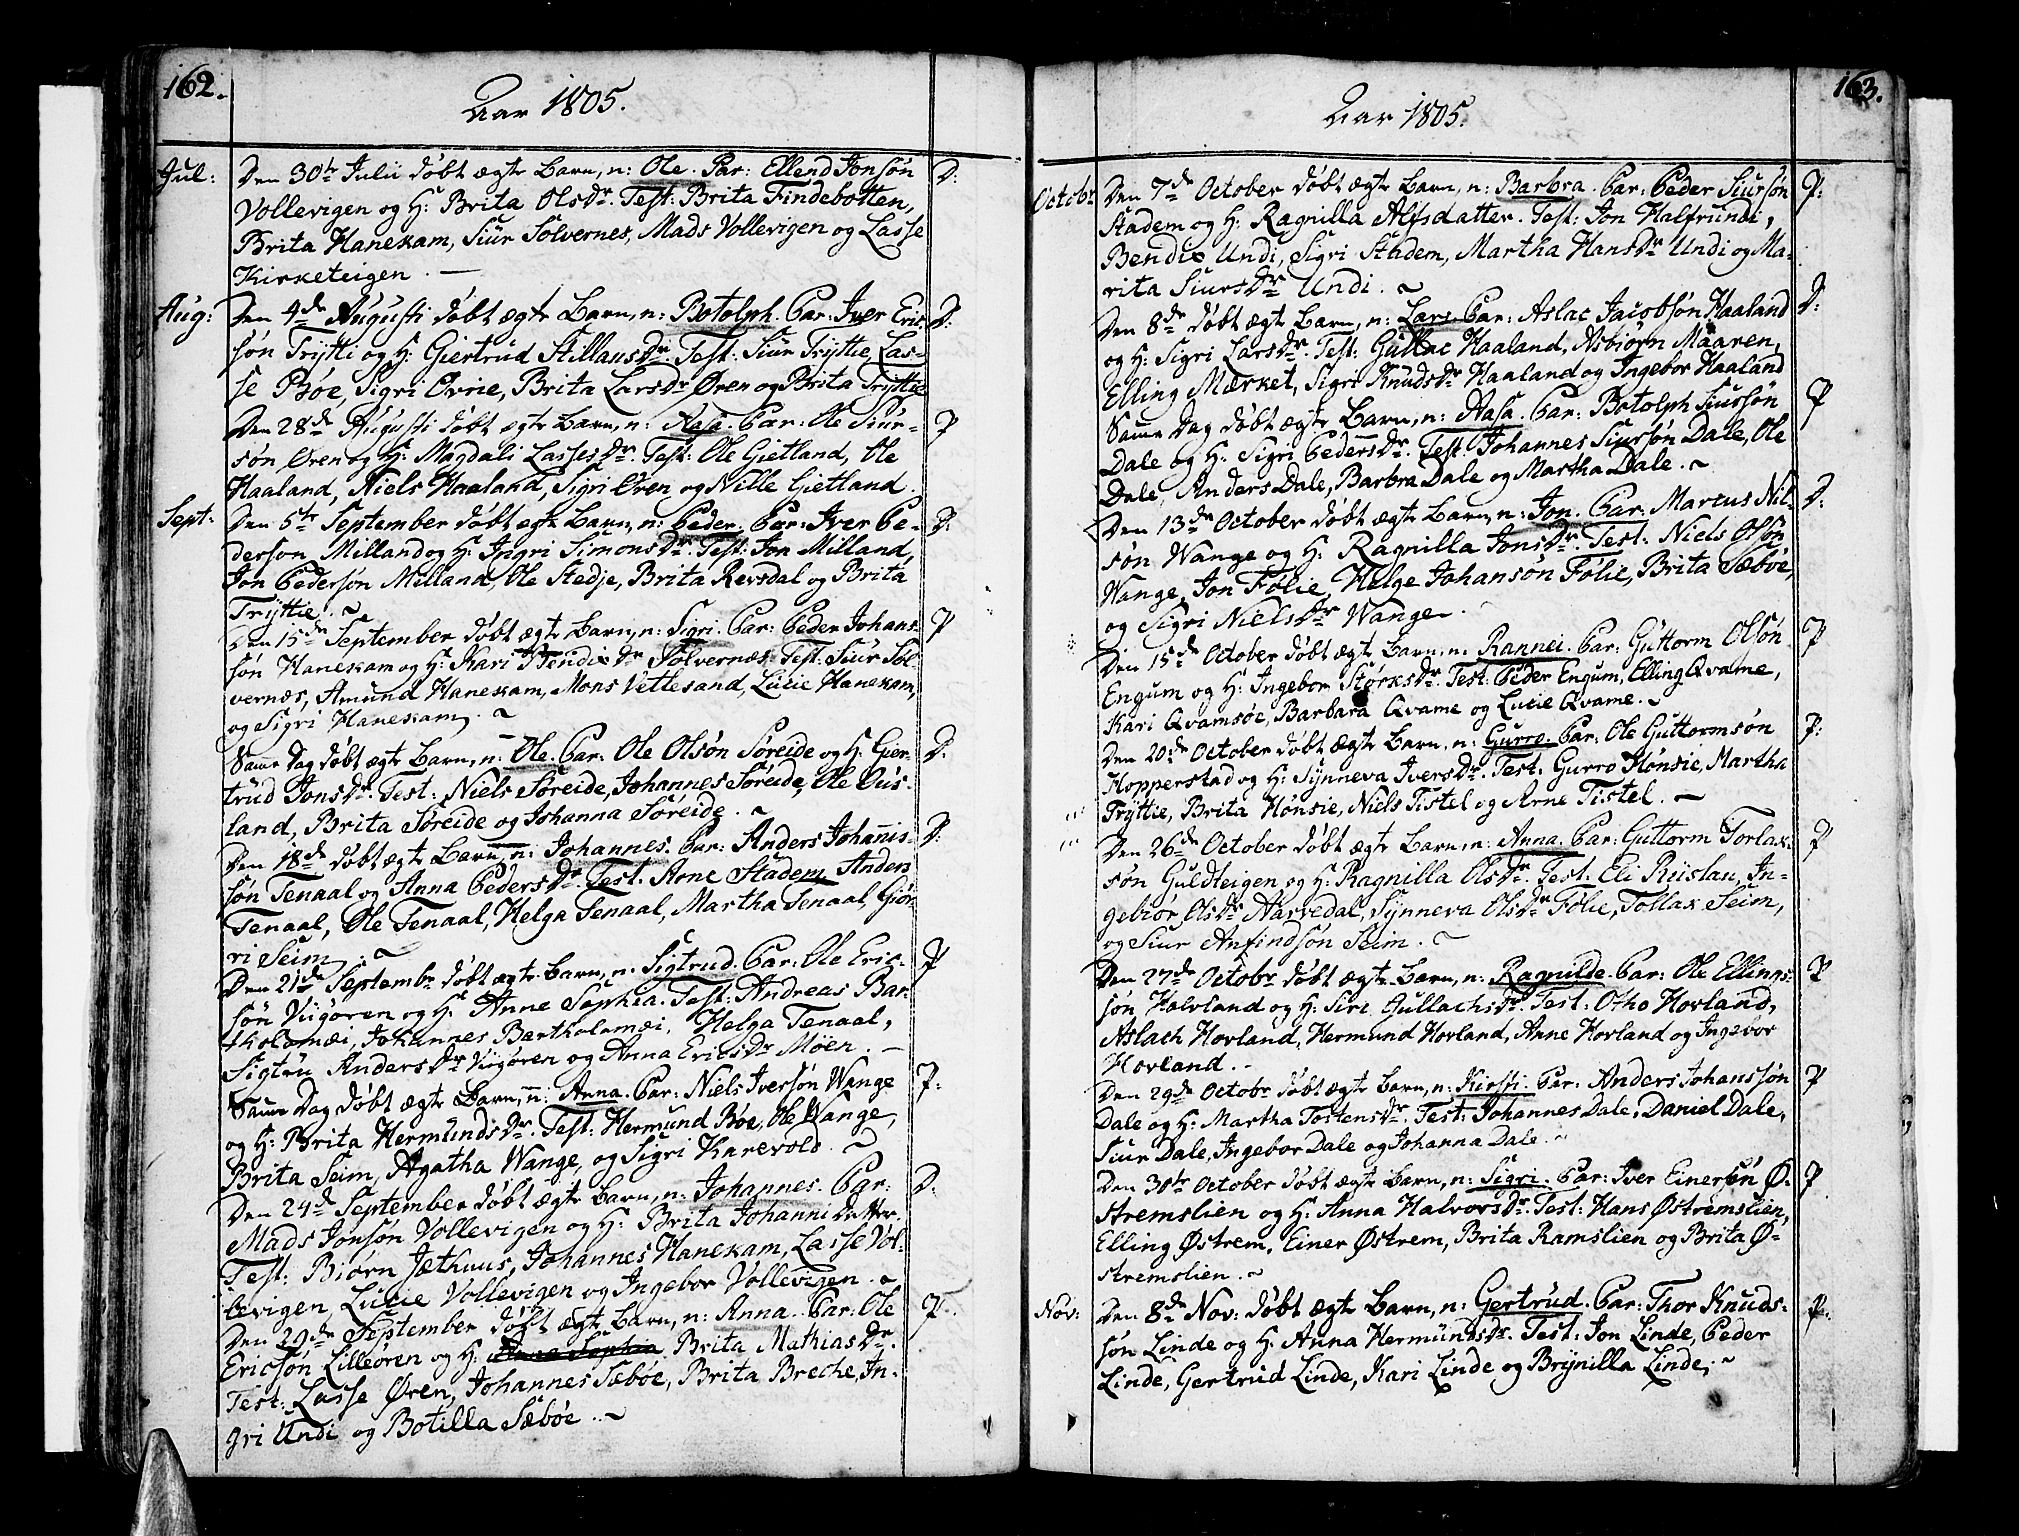 162.
Aar 1805.
Jul: Den 30te Julii døbt ægte Barn, n: Ole. Par: Ellend Jonsøn D:
Vollevigen og H: Brita Olsdr. Test: Brita Findebotten,
Brita Hanekam, Siur Solvernes, Mads Vollevigen og Lasse
Kirketeigen. —
Aug: Den 4de Augusti døbt ægte Barn, n: Botolph. Par: Iver Eric- D:
søn Trÿtti og H: Giertrud Stillausdr. Test: Siur Trÿttie, Las-
se Bøe, Sigri Ovrie, Brita Larsdr Øren og Brita Trÿttie
Den 28de Augusti døbt ægte Barn, n: Aasa. Par: Ole Siur- P
søn Øren og H: Magdali Lassesdr. Test: Ole Gietland, Ole
Haaland, Niels Haaland, Sigri Øren og Nille Gietland.
Sept: Den 5te September døbt ægte Barn, n: Peder. Par: Iver Pe- D:
derson Milland og H: Ingri Simonsdr. Test: Jon Milland,
Jon Pedersøn Milland, Ole Stedje, Brita Revsdal og Brita
Trÿttie. ~
Den 15de September døbt ægte Barn, n: Sigri. Par: Peder Johans- P
søn Hanekam og H: Kari Bendixdr Solvernæs. Test: Siur Sol-
vernæs, Amund Hanekam, Mons Vetlesand, Lucie Hanekam,
og Sigri Hanekam. ~
Same Dag døbt ægte Barn, n: Ole. Par: Ole Olsøn Søreide og H: Gier- D:
trud Jonsdr. Test: Niels Søreide, Johannes Søreide, Ole Ous-
land, Brita Søreide og Johanna Søreide. ~
Den 18de døbt ægte Barn, n: Johannes. Par: Anders Johanis- D:
søn Tenaal og Anna Pedersdr. Test: Arne Stadem, Anders
Tenaal, Ole Tenaal, Helga Tenaal, Martha Tenaal, Giøn-
ri Seim. ~
Den 21de Septembr døbt ægte Barn, n: Sigtrud. Par: Ole Eric- P
søn Viigøren og H: Anne Sophia. Test: Andreas Bar-
tholomæi, Johannes Bartholomæi, Helga Tenaal,
Sigtru Andersdr Viigøren og Anna Ericsdr Moen. —
Same Dag døbt ægte Barn, n: Anna. Par: Niels Iversøn Wange P:
og H: Brita Hermundsdr. Test: Hermund Bøe, Ole Wange,
Brita Seim, Agatha Wange, og Sigri Karevold. ~
Den 24de September døbt ægte Barn, n: Johannes. Par: D:
Mads Jonsøn Vollevigen og H: Brita Johannidatter.
Test: Biørn Sæthuus, Johannes Hanekam, Lasse Vol-
levigen, Lucie Vollevigen og Ingebor Vollevigen. ~
Den 29de September døbt ægte Barn, n: Anna. Par: Ole P.
Ericsøn Lilleøren og H: Anna Sophia Brita Mathiasdr.
Test: Lasse Øren, Johannes Sæbøe, Brita Breche, In-
gri Undi og Botilla Sæbøe. ~
163.
Aar 1805.
Octobr Den 7de October døbt ægte Barn, n: Barbra. Par: Peder Siursøn P:
Stadem og H: Ragnilla Alfsdatter. Test: Jon Halfrundi,
Bendix Undi, Sigri Stadem, Martha Hansdr Undi og Ma-
rita Siursdr Undi. ~
Den 8de døbt ægte Barn, n: Lars. Par: Aslac Jacobsøn Haaland D:
og H: Sigri Larsdr. Test: Gullac Haaland, Asbiørn Maaren,
Elling Mærket, Sigri Knudsdr Haaland og Ingebor Haaland
Same Dag døbt ægte Barn, n: Aasa. Par: Botolph Siursøn P
Dale og H: Sigri Pedersdr. Test: Johannes Siursøn Dale, Ole
Dale, Anders Dale, Barbra Dale og Martha Dale. ~
Den 13de October døbt ægte Barn, n: Jon. Par: Marcus Nil- D:
søn Wange og H: Ragnilla Jonsdr. Test: Niels Olsøn
Wange, Jon Følie, Helge Johansøn Følie, Brita Sæbøe,
og Sigri Nielsdr Wange.
Den 15de October døbt ægte Barn, n: Rannei. Par: Guttorm Olsøn P
Engum og H: Ingebor Størksdr. Test: Peder Engum, Elling Qvame,
Kari Qvamsøe, Barbara Qvame og Lucie Qvame. ~
Den 20de October døbt ægte Barn, n: Gurro. Par: Ole Guttormsøn P:
Hopperstad og H: Sÿnneva Iversdr. Test: Gurro Hønsie, Martha
Trÿttie, Brita Hønsie, Niels Tistel og Arne Tistel. ~
Den 26de October døbt ægte Barn, n: Anna. Par: Guttorm Torlax- P
søn Guldteigen og H: Ragnilla Olsdr. Test: Eli Riislau, In-
gebiør Olsdr Aarvedal, Sÿnneva Olsdr Følie, Tollax Seim,
og Siur Anfindsøn Seim. ~
Den 27de Octobr døbt ægte Barn, n: Ragnilde. Par: Ole Ellings- P
søn Halvland og H: Siri Gullachsdr. Test: Otho Hovland,
Aslach Hovland, Hermund Hovland, Anne Hovland og Ingebor
Hovland. ~
Den 29de Octobr døbt ægte Barn, n: Kirsti. Par: Anders Johanssøn P
Dale og H: Martha Tostensdr. Test: Johannes Dale, Daniel Dale,
Siur Dale, Ingebor Dale og Johanna Dale. ~
Den 30te October døbt ægte Barn, n: Sigri. Par: Iver Einersøn Ø- P
stremslien og H: Anna Halvorsdr. Test: Hans Østremslien,
Elling Østrem, Einer Østrem, Brita Ramslien og Brita Ø-
stremslien. ~
Nov: Den 8de Nov: døbt ægte Barn, n: Gertrud. Par: Thor Knuds- P.
søn Linde og H: Anna Hermundsdr. Test: Jon Linde, Peder
Linde, Gertrud Linde, Kari Linde og Brÿnilla Linde. ~